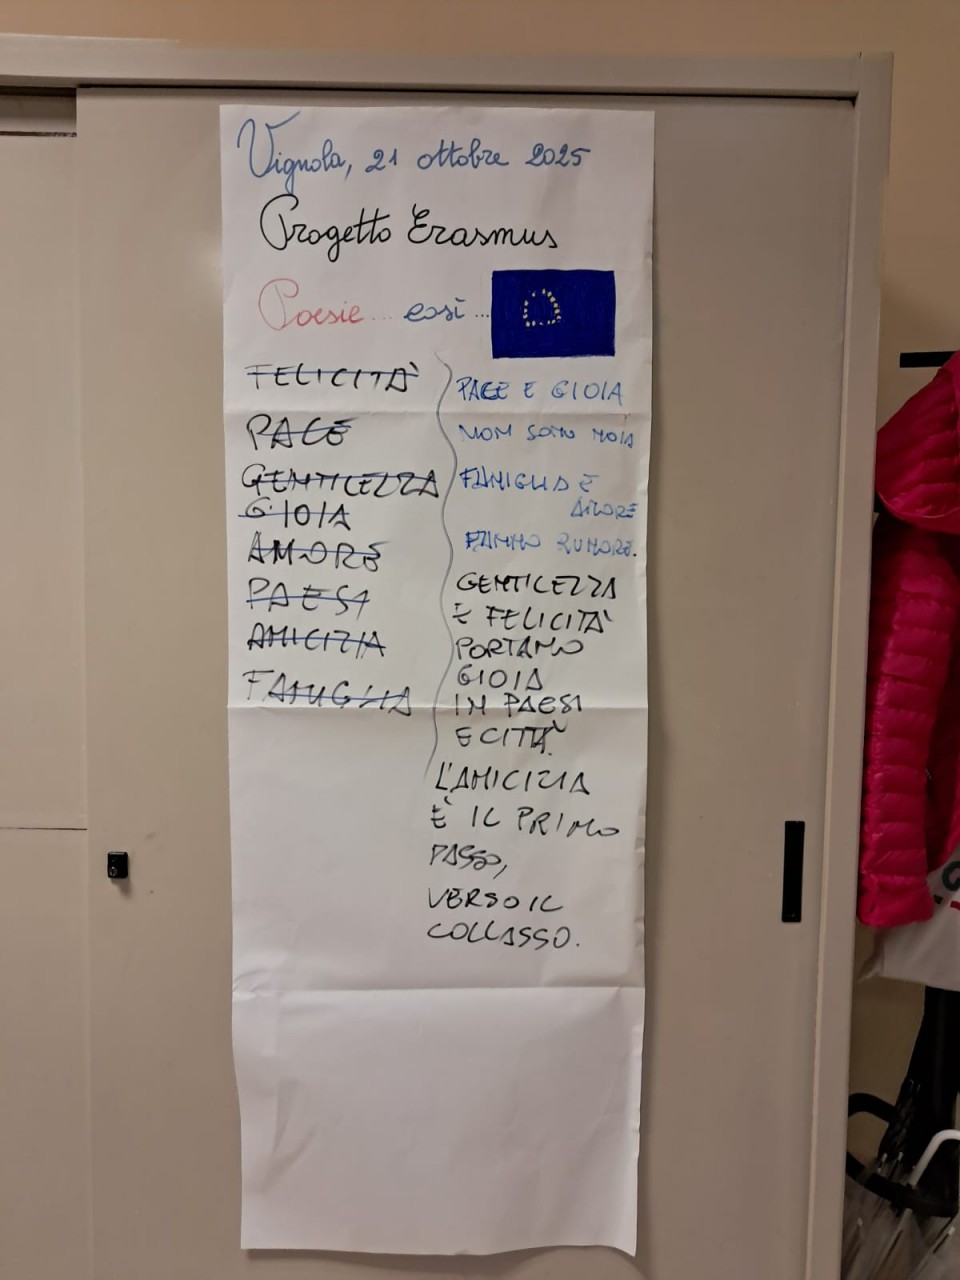 Vignola, 21 ottobre 2025
Progetto Erasmus
Poesie... così...
FELICITÀ
PACE
GENTILEZZA
GIOIA
AMORE
PAESI
AMICIZIA
FAMIGLIA
PACE E GIOIA
NON SONO NOIA
FAMIGLIA E
AMORE
FANNO RUMORE.
GENTILEZZA
E FELICITÀ
PORTANO
GIOIA
IN PAESI
E CITTÀ.
L'AMICIZIA
È IL PRIMO
PASSO,
VERSO IL
COLLASSO.